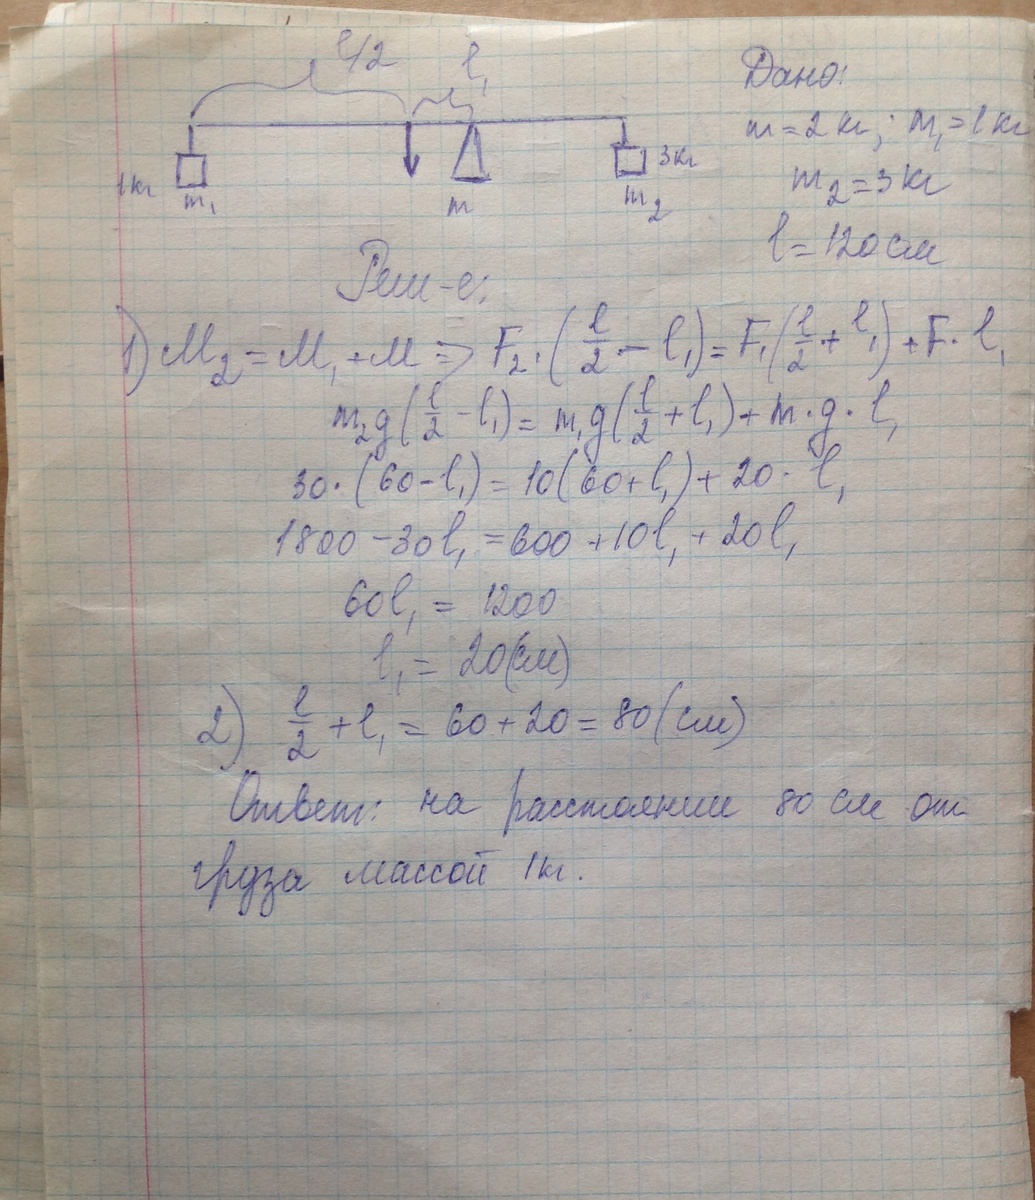 l/2
l₁
Дано:
m = 2 кг; m₁ = 1 кг
1 кг
m₁
m
3 кг
m₂
m₂ = 3 кг
l = 120 см
Реш-е:
1) M₂ = M₁ + M => F₂·(l/2 - l₁) = F₁(l/2 + l₁) + F·l₁
m₂g(l/2 - l₁) = m₁g(l/2 + l₁) + m·g·l₁
30·(60 - l₁) = 10(60 + l₁) + 20·l₁
1800 - 30l₁ = 600 + 10l₁ + 20l₁
60l₁ = 1200
l₁ = 20(см)
2) l/2 + l₁ = 60 + 20 = 80 (см)
Ответ: на расстоянии 80 см от
груза массой 1 кг.